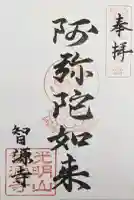 奉拝
阿弥陀如来
智源寺
光明山